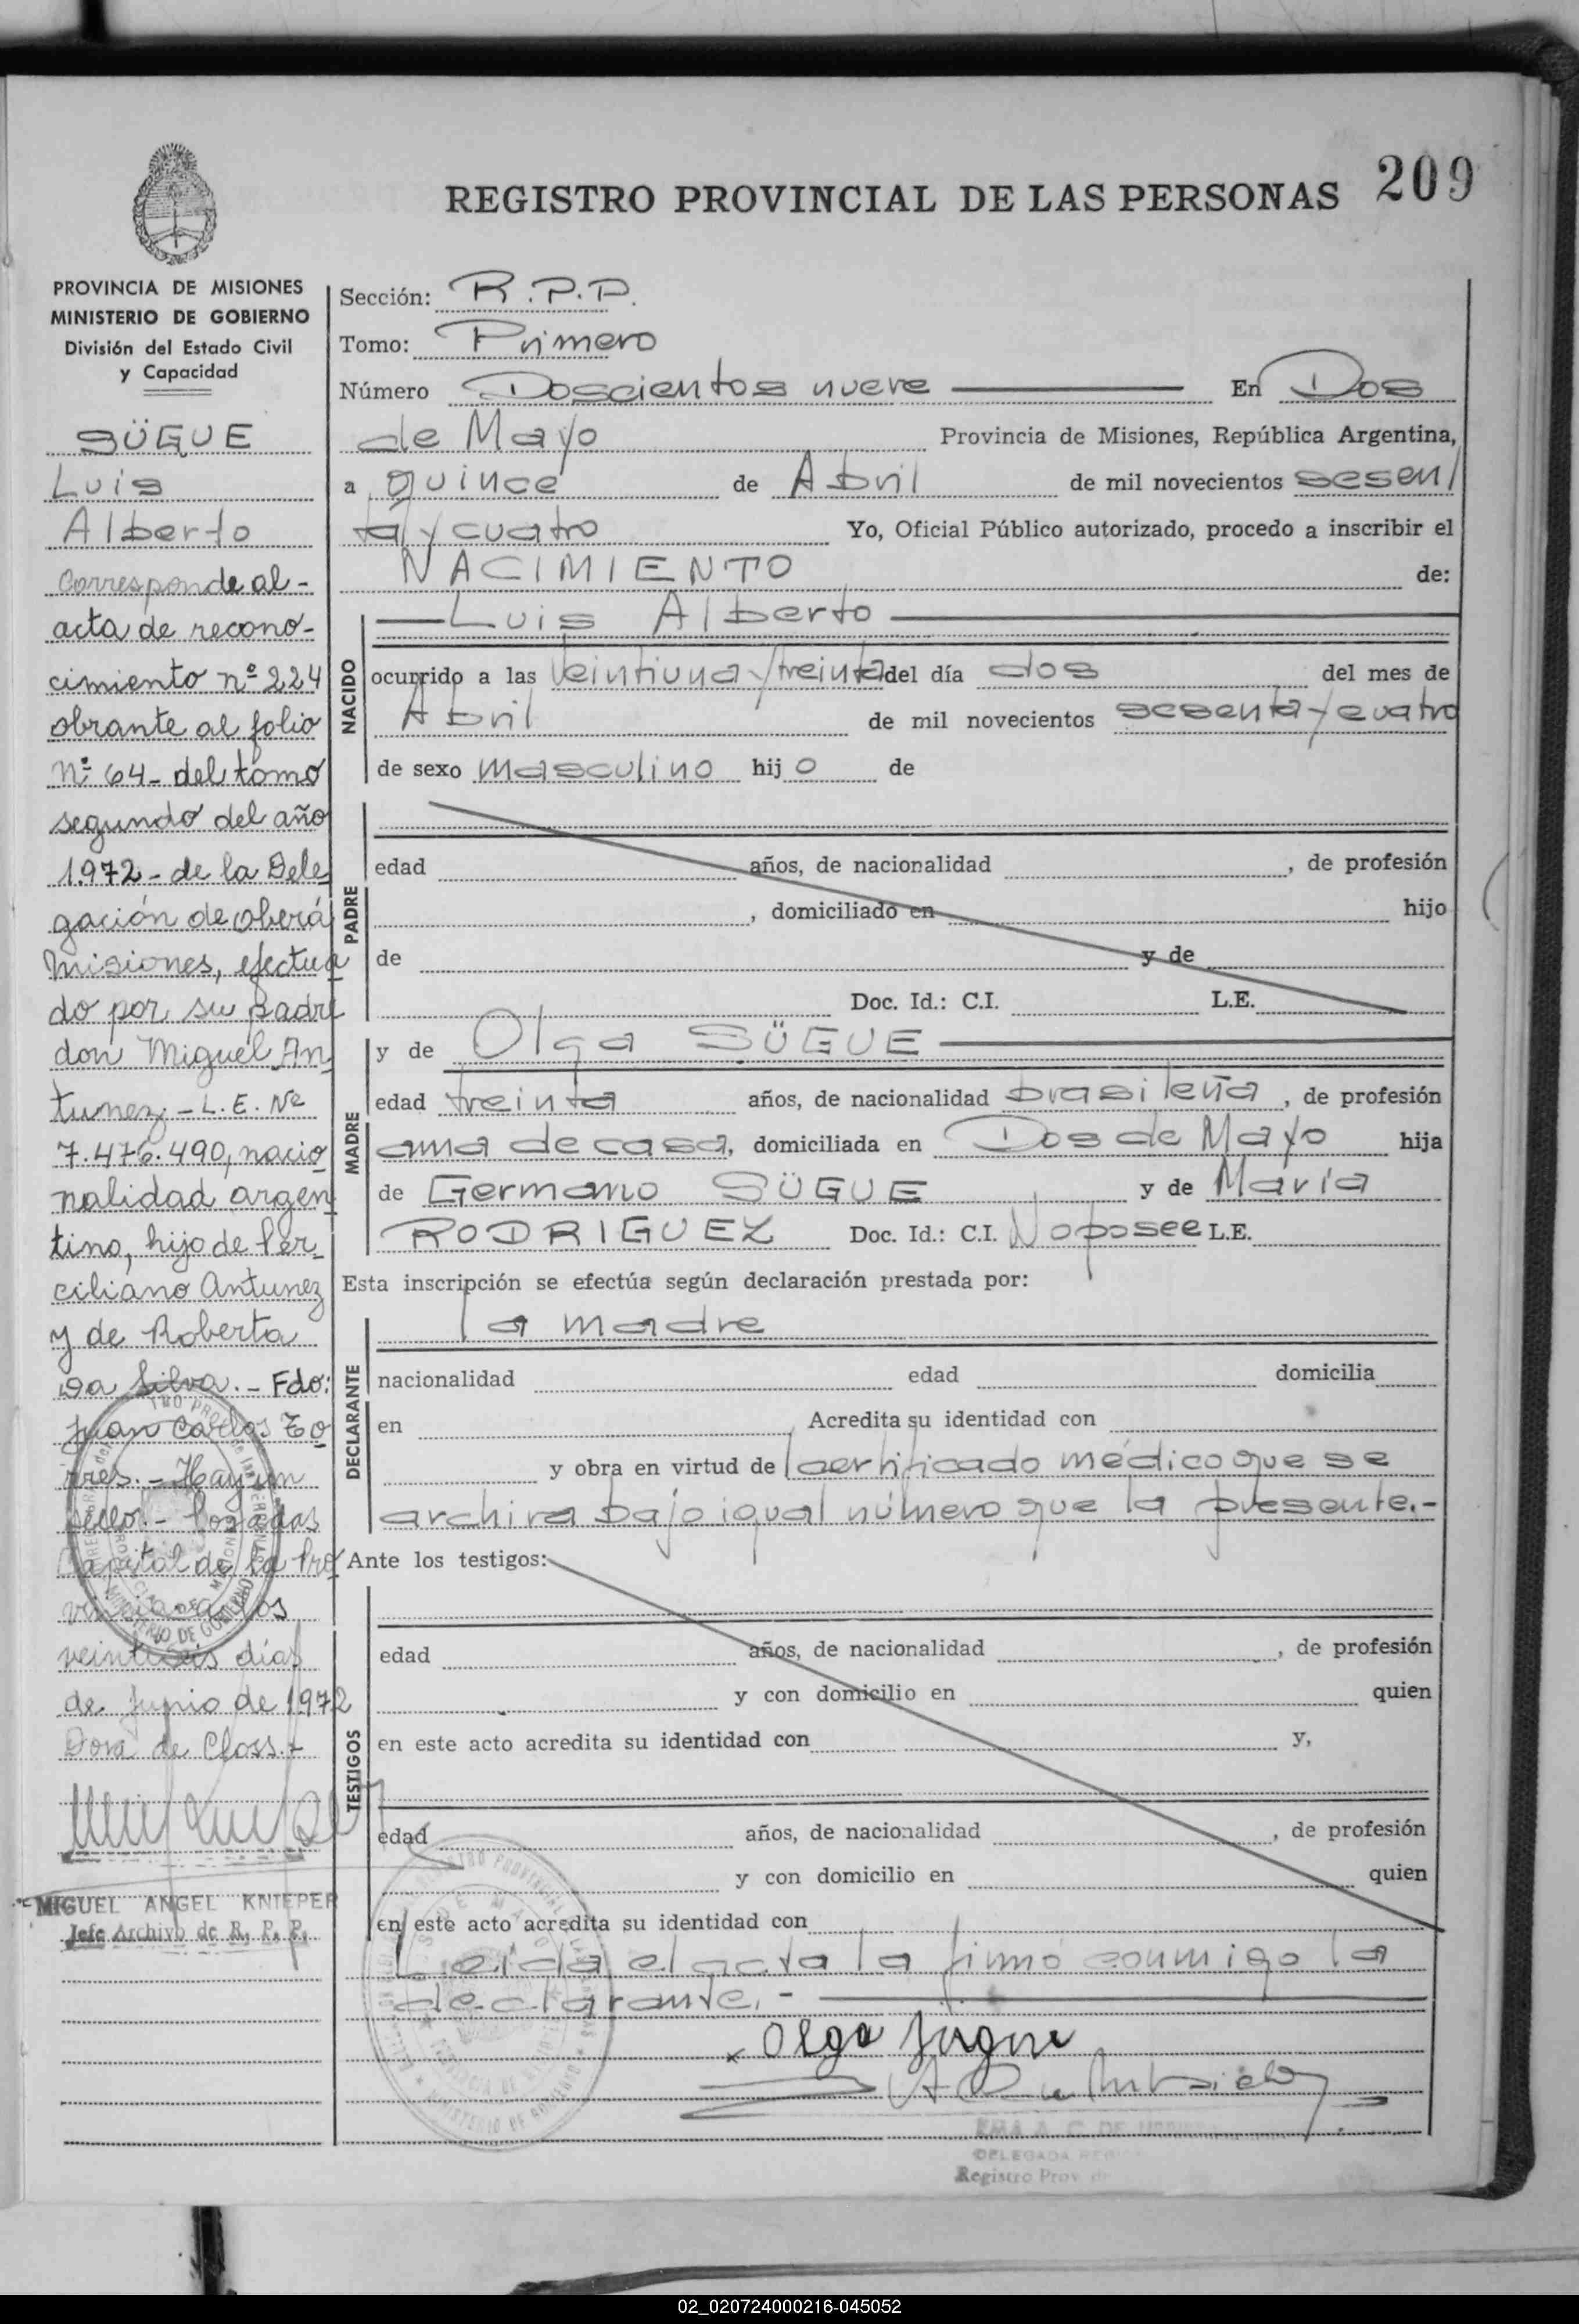 209
REGISTRO PROVINCIAL DE LAS PERSONAS
PROVINCIA DE MISIONES
MINISTERIO DE GOBIERNO
División del Estado Civil
y Capacidad
SÜGUE
Luis
Alberto
Corresponde al-
acta de recono-
cimiento nº 224
obrante al folio
Nº 64- del tomo
segundo del año
1.972- de la Dele
gación de oberá
Misiones, efectua
do por su padre
don Miguel An
tunez - L.E. Nº
7.476.490, nacio
nalidad argen
tino, hijo de Per
ciliano Antunez
y de Roberta
Da Silva.- Fdo:
Juan Carlos To
rres.- Hay un
sello.- Posadas
Capital de la Pro
vincia a los
veintiseis días
de Junio de 1972
Dora de Closs.-
MIGUEL ANGEL KNIEPER
Jefe Archivo de R. P. P.
Sección: R.P.P.
Tomo: Primero
Número Doscientos nueve En Dos
de Mayo Provincia de Misiones, República Argentina,
a quince de Abril de mil novecientos sesen/
ta/y cuatro Yo, Oficial Público autorizado, procedo a inscribir el
NACIMIENTO de:
Luis Alberto
NACIDO
ocurrido a las Veintiuna y treinta del día dos del mes de
Abril de mil novecientos sesenta y cuatro
de sexo masculino hijo de
PADRE
edad años, de nacionalidad , de profesión
, domiciliado en hijo
de y de
Doc. Id.: C.I. L.E.
MADRE
y de Olga SÜGUE
edad treinta años, de nacionalidad brasileña, de profesión
ama de casa, domiciliada en Dos de Mayo hija
de Germano SÜGUE y de María
RODRIGUEZ Doc. Id.: C.I. No posee L.E.
Esta inscripción se efectúa según declaración prestada por:
DECLARANTE
la madre
nacionalidad edad domicilia
en Acredita su identidad con
y obra en virtud de/certificado médico que se
archiva bajo igual número que la presente.-
Ante los testigos:
TESTIGOS
edad años, de nacionalidad , de profesión
y con domicilio en quien
en este acto acredita su identidad con y,
edad años, de nacionalidad , de profesión
y con domicilio en quien
en este acto acredita su identidad con
Leida el acta la firmó conmigo la
declarante.-
x Olga Sügue
DELEGADA
Registro Prov. de
02_020724000216-045052